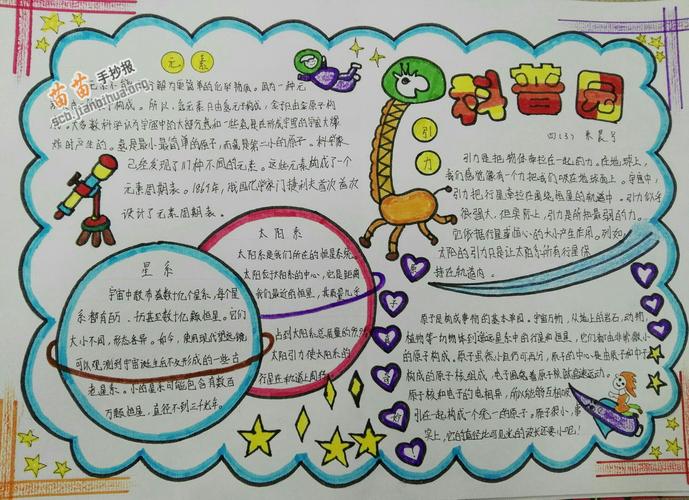 苗苗手抄报
scb.jianbihua.org
元素
解为更简单的化学物质,因为一种元
构成。所以,氢元素只由氢元子构成,金子只由金原子构
大多数科学认为宇宙中的大部分氢和一些氦是在形成宇宙的宇宙大爆
炸时产生的。氢是最小最简单的原子,而氦是第二小的原子。科学家
已经发现了111种不同的元素。这些元素构成了一个
元素周期表。1869年,俄国化学家门捷列夫首次
设计了元素周期表。
科普园
四(3) 朱晨
引力
引力是把物体牵拉在一起的力。在地球上,
我们感觉像有一个力把我们吸在地球面上。宇宙中,
引力把行星牵拉在围绕恒星的轨道中。引力似乎
很强大,但实际上,引力是所知最弱的力。
它依据行星或恒心的大小产生作用。例如,
太阳的引力只是让太阳系所有行星保
持在轨道内。
太阳系
太阳系是我们所在的恒星系统。
太阳位于太阳系的中心,它是距离
我们最近的恒星,其质量几乎
占到太阳系总质量的
太阳引力使太阳系的
行星在轨道上
星系
宇宙中散布着数十亿个星系,每个星
系都有的、恒星。它们
大小不同,形态各异。如今,使用现代望远镜
可以观测到宇宙诞生后不久形成的一些古
老星系。小的星系可能包含有数百
万颗恒星,直径不到三千光年。
原子
原子是构成事物的基本单园。宇宙万物,从地上的岩石、动物、
植物等一切物体到遥远星系中的行星和恒星,它们都由非常微小
的原子构成。原子虽微小但仍可再分,原子的中心是由质子和中子
构成的原子核组成,电子围绕着原子核高速运动。
原子核和电子的电相异,所以能够互相吸
引在一起,构成一个完一的原子。原子很小,事
实上,它的直径比可见光的波长还要小呢!